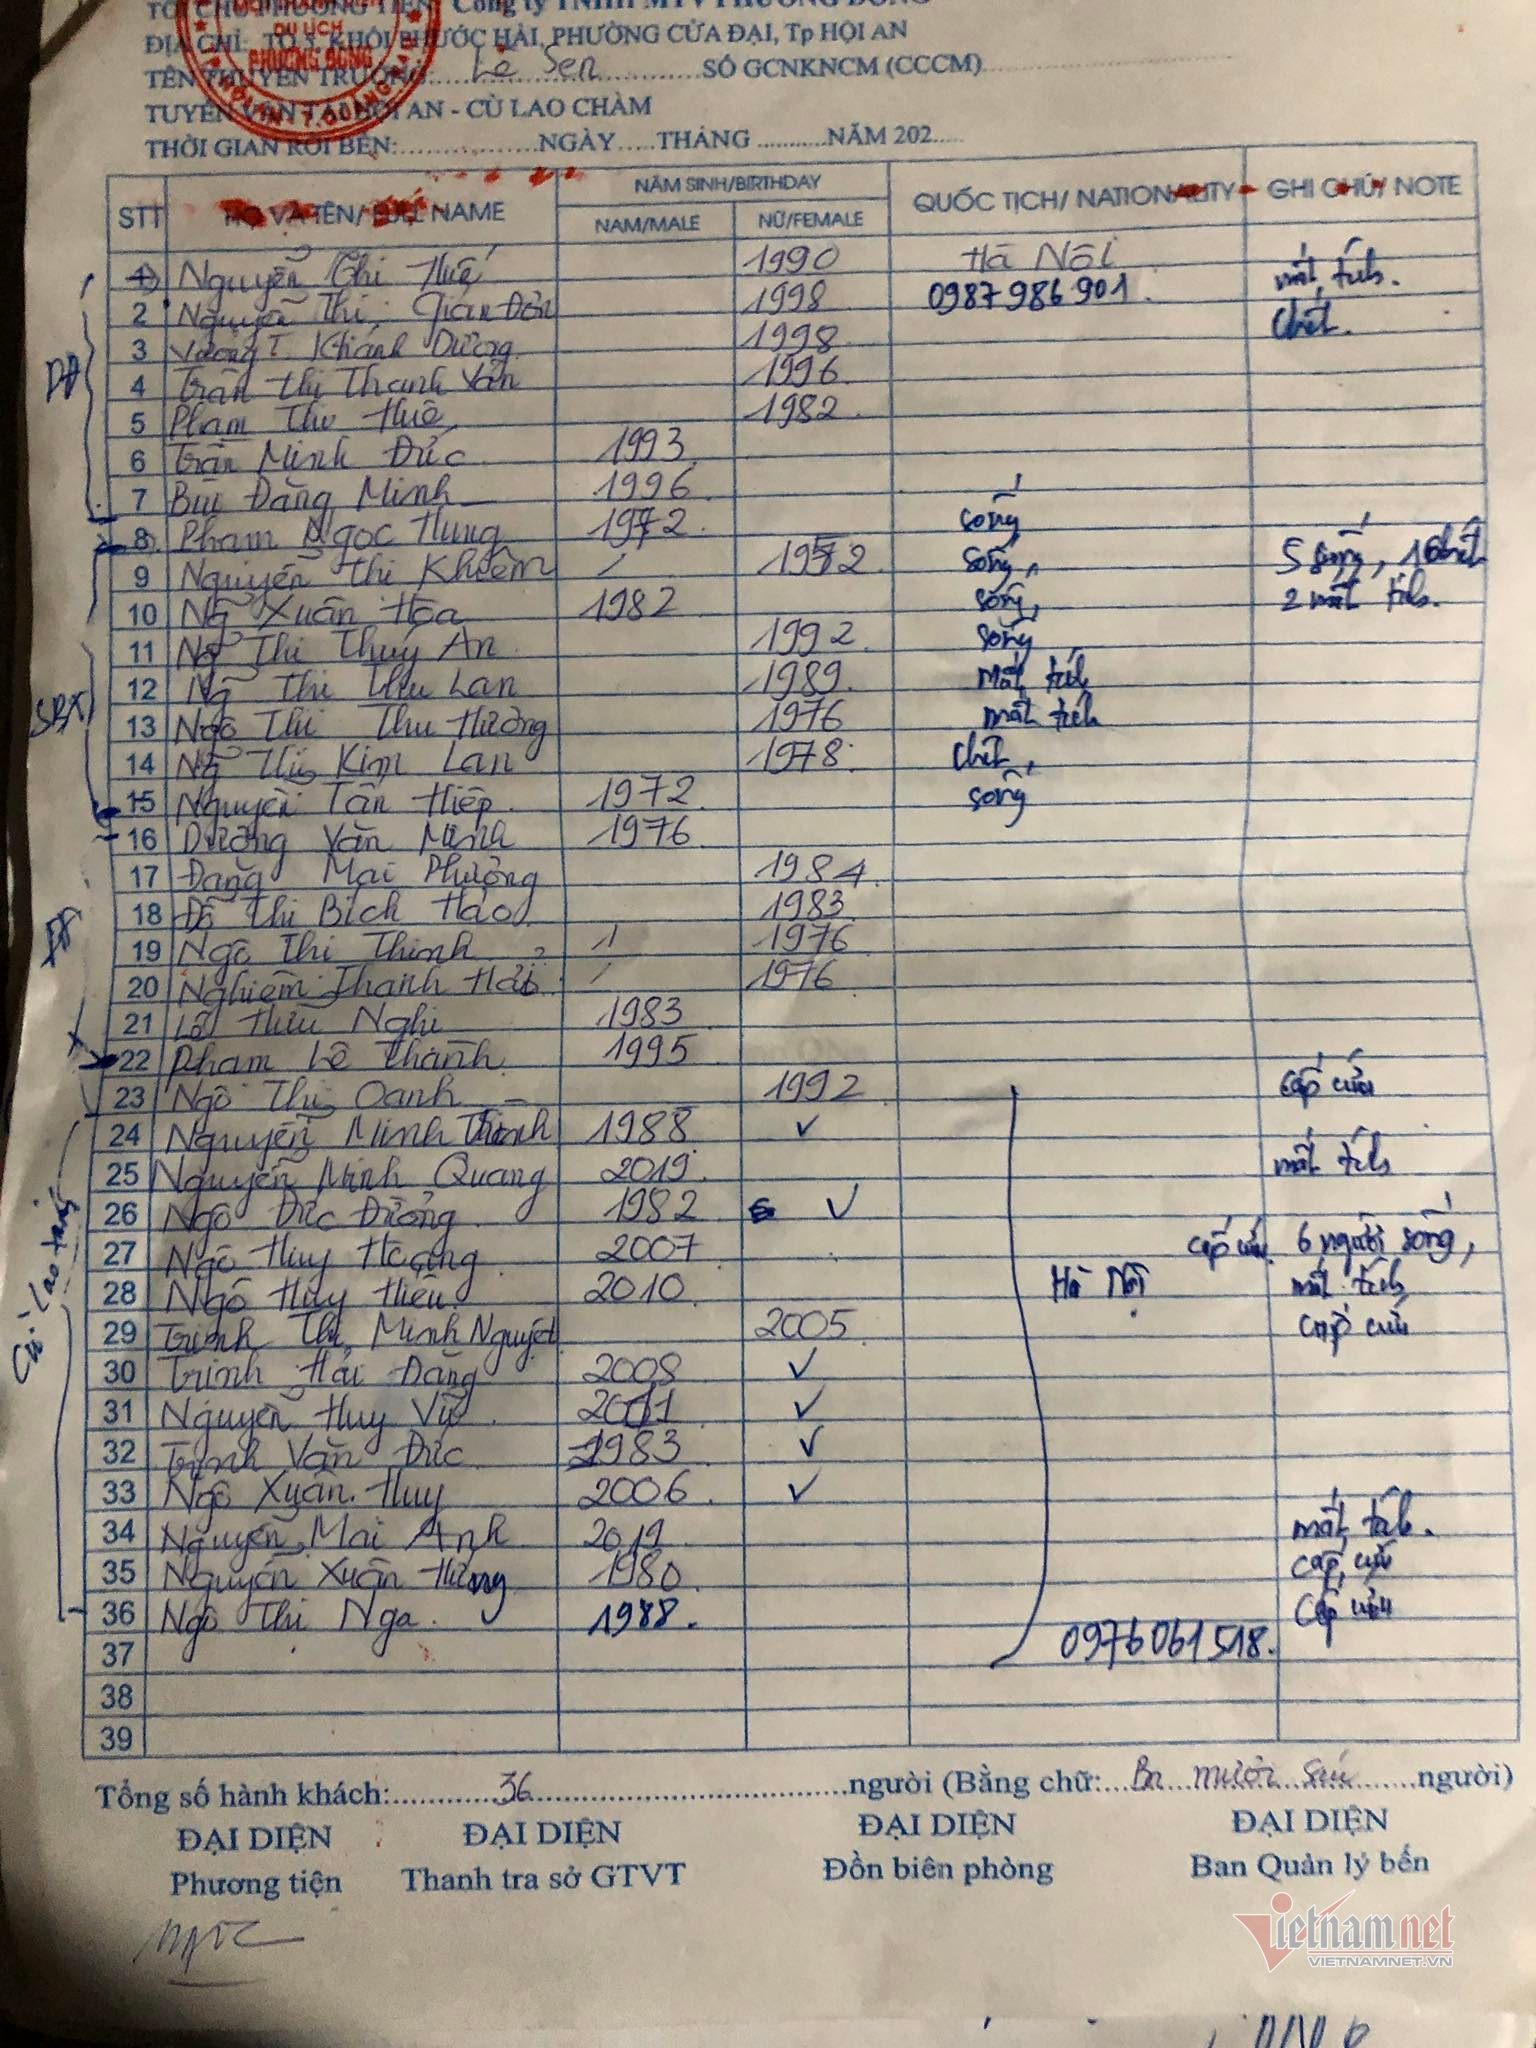 TỔ CHỨC PHƯƠNG TIỆN: Công ty TNHH MTV PHƯƠNG ĐÔNG
ĐỊA CHỈ: TỔ 3, KHỐI PHƯỚC HẢI, PHƯỜNG CỬA ĐẠI, Tp HỘI AN
TÊN THUYỀN TRƯỞNG: Lê Sen SỐ GCNKNCM (CCCM)
TUYẾN VẬN TẢI HỘI AN - CÙ LAO CHÀM
THỜI GIAN RỜI BẾN: NGÀY THÁNG NĂM 202
DU LỊCH
PHƯƠNG ĐÔNG
STT HỌ VÀ TÊN/ FULL NAME NĂM SINH/BIRTHDAY QUỐC TỊCH/ NATIONALITY GHI CHÚ/ NOTE
NAM/MALE NỮ/FEMALE
1 Nguyễn Thị Huế 1990 Hà Nội mất tích.
2 Nguyễn Thị Đơn 1998 0987986901. Chết.
3 Vương T. Khánh Dương 1998
4 Trần Thị Thanh Vân 1996
5 Phạm Thu Huê 1982
6 Trần Minh Đức 1993
7 Bùi Đăng Minh 1996
8 Phạm Ngọc Hưng 1972 sống
9 Nguyễn Thị Khiêm 1952 sống, 5 sống, 1 chết
10 Ngô Xuân Hòa 1982 sống, 2 mất tích.
11 Ngô Thị Thúy An 1992 sống
12 Ngô Thị Thu Lan 1989 Mất tích
13 Ngô Thị Thu Hương 1976 mất tích
14 Ngô Thị Kim Lan 1978 Chết,
15 Nguyễn Tấn Hiệp 1972 sống
16 Dương Văn Minh 1976
17 Đặng Mai Phương 1984
18 Đỗ Thị Bích Hảo 1983
19 Ngô Thị Thinh 1976
20 Nghiêm Thanh 1976
21 Lê Hữu Nghị 1983
22 Phạm Lê Thành 1995
23 Ngô Thị Oanh 1992 cấp cứu
24 Nguyễn Minh 1988 ✓
25 Nguyễn Minh Quang 2019 mất tích
26 Ngô Đức Đường 1982 ✓
27 Ngô Huy Hoàng 2007 cấp cứu 6 người sống,
28 Ngô Huy Hiếu 2010 Hà Nội mất tích
29 Trịnh Thị Minh Nguyệt 2005 cấp cứu
30 Trịnh Hải Đăng 2008 ✓
31 Nguyễn Huy Vũ 2011 ✓
32 Trịnh Văn Đức 1983 ✓
33 Ngô Xuân Huy 2006 ✓
34 Nguyễn Mai Anh 2019 mất tích.
35 Nguyễn Xuân Hùng 1980 cấp cứu
36 Ngô Thị Nga. 1988. cấp cứu
37 0976061518.
38
39
Tổng số hành khách: 36 người (Bằng chữ: Ba mươi sáu người)
ĐẠI DIỆN ĐẠI DIỆN ĐẠI DIỆN ĐẠI DIỆN
Phương tiện Thanh tra sở GTVT Đồn biên phòng Ban Quản lý bến
Vietnamnet
VIETNAMNET.VN